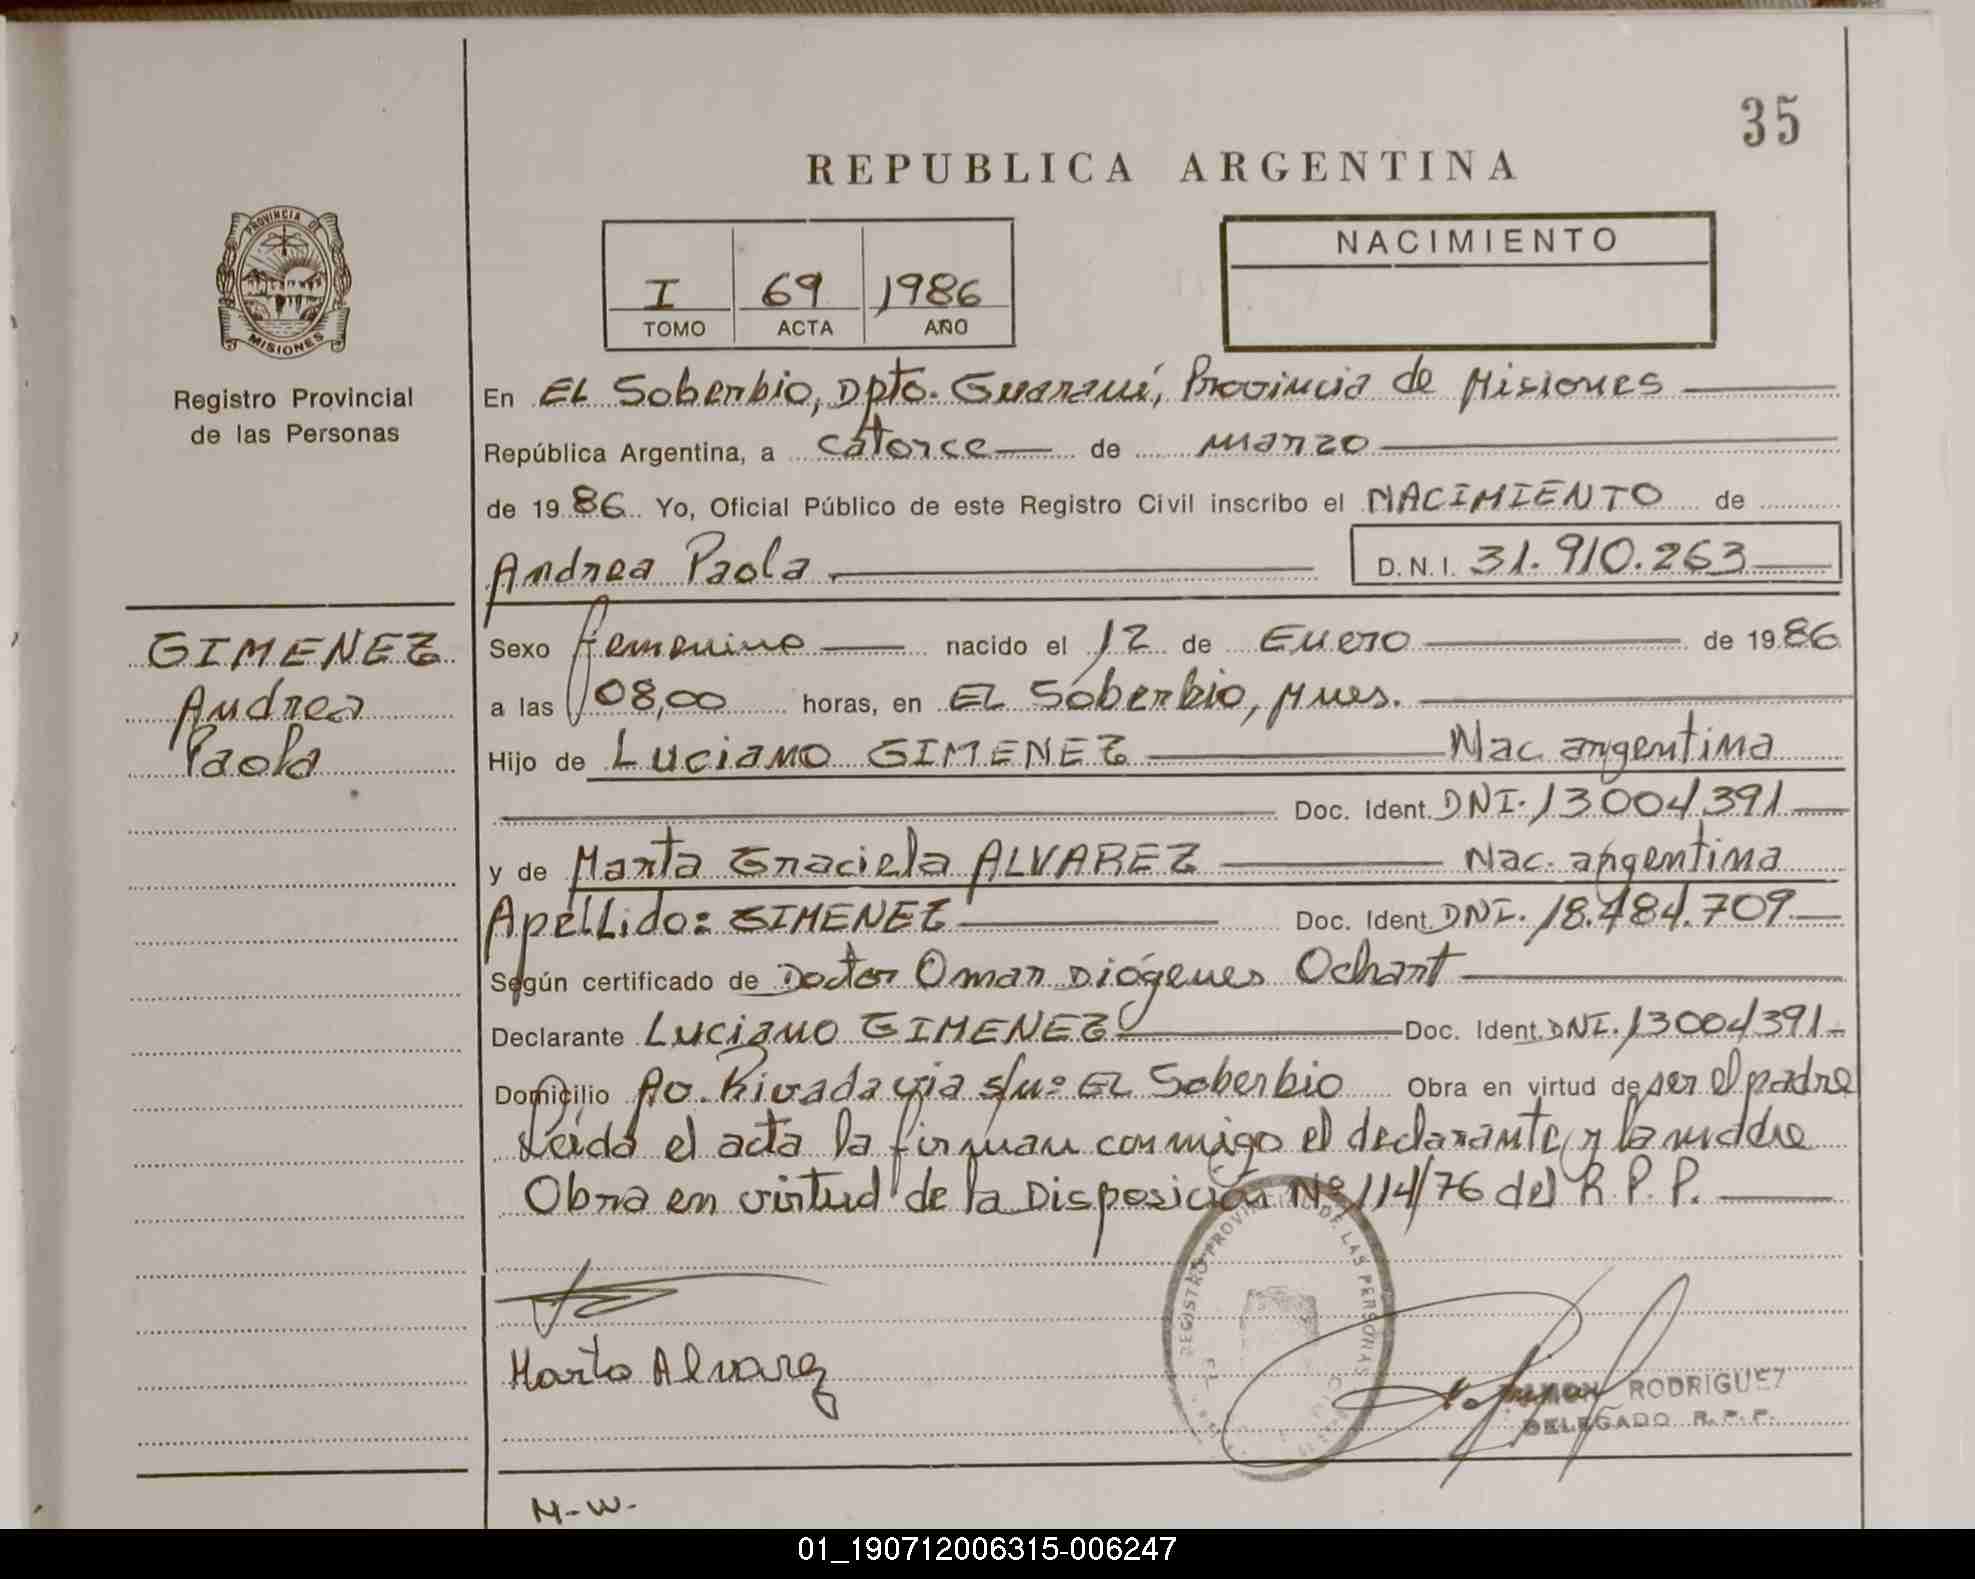 35
REPUBLICA ARGENTINA
PROVINCIA DE
MISIONES
Registro Provincial
de las Personas
I 69 1986
TOMO ACTA AÑO
NACIMIENTO
En EL Soberbio, Dpto. Guaraní, Provincia de Misiones
República Argentina, a catorce de marzo
de 1986 Yo, Oficial Público de este Registro Civil inscribo el NACIMIENTO de
Andrea Paola D.N.I. 31.910.263
GIMENEZ
Andrea
Paola
Sexo femenino nacido el 12 de Enero de 1986
a las 08,00 horas, en EL Soberbio, Mnes.
Hijo de Luciano GIMENEZ Nac. argentina
Doc. Ident. DNI. 13004391
y de Marta Graciela ALVAREZ Nac. argentina
Apellido: GIMENEZ Doc. Ident. DNI. 18.484.709
Según certificado de Doctor Omar Diógenes Ochart
Declarante Luciano GIMENEZ Doc. Ident. DNI. 13004391
Domicilio Av. Rivadavia s/nº EL Soberbio Obra en virtud de ser el padre
Leida el acta la firman conmigo el declarante y la madre
Obra en virtud de la Disposición Nº 114/76 del R. P. P.
REGISTRO PROVINCIAL DE LAS PERSONAS
Marta Alvarez
RAMON RODRIGUEZ
DELEGADO R.P.P.
M-W-
01_190712006315-006247